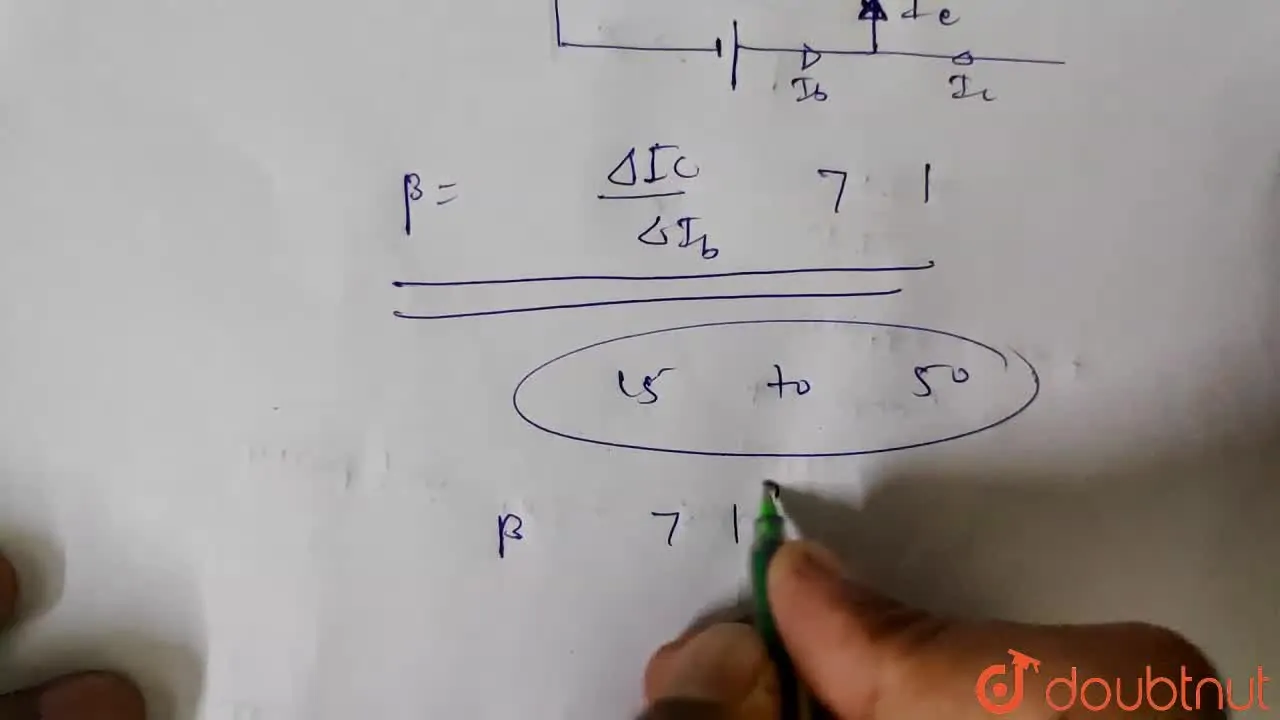 Ie
Ib Ic
β = ΔIC / ΔIb > 1
15 to 50
β > 1
doubtnut